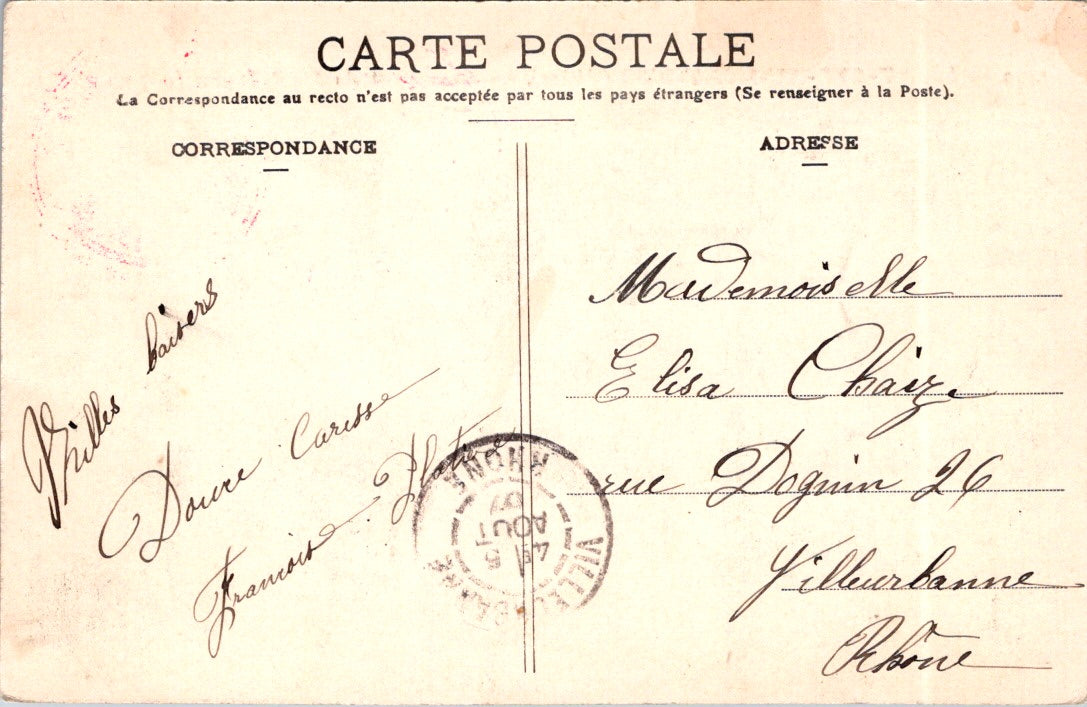 CARTE POSTALE
La Correspondance au recto n'est pas acceptée par tous les pays étrangers (Se renseigner à la Poste).
CORRESPONDANCE
baisers
Douce Caresse
ADRESSE
Mademoiselle
Elisa Chaize
rue Dognin 26
Villeurbanne
Rhône
RHONE
AOUT
07